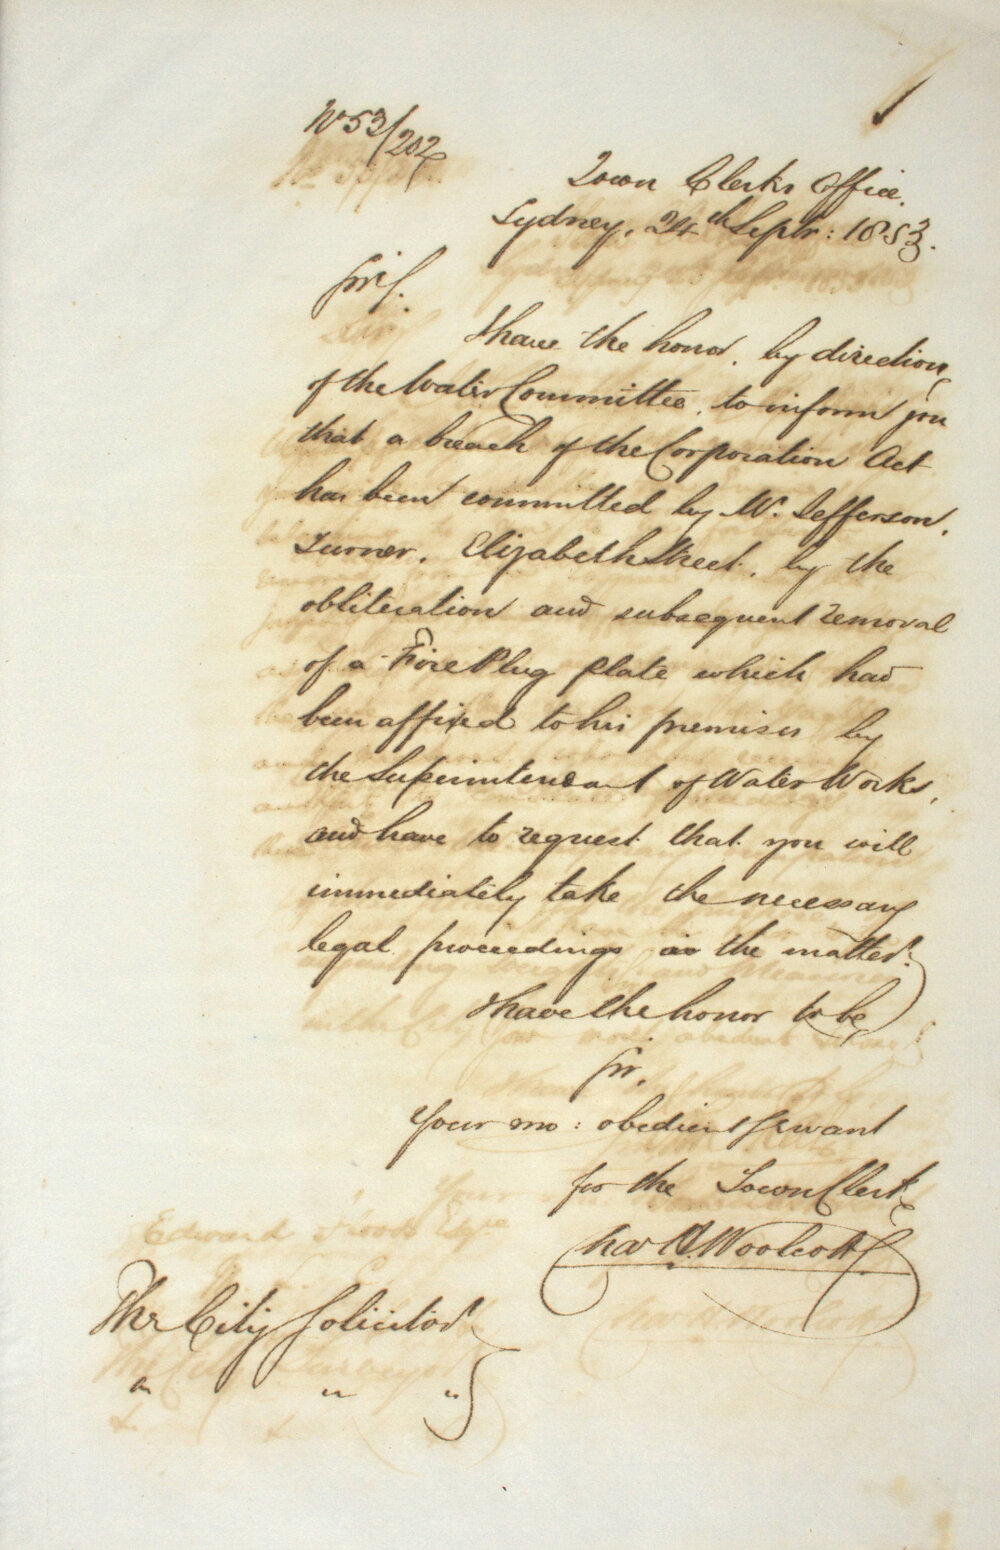 No 53/202
Town Clerks Office.
Sydney, 24th Septr: 1853.
Sir,
I have the honor, by direction
of the Water Committee, to inform you
that a breach of the Corporation Act
has been committed by Mr. Jefferson,
Turner, Elizabeth Street, by the
obliteration and subsequent removal
of a Fire Plug plate which had
been affixed to his premises by
the Superintendent of Water Works,
and have to request that you will
immediately take the necessary
legal proceedings in the matter.
I have the honor to be,
Sir,
Your mo: obedient Servant
for the Town Clerk
Chas H. Woolcott
The City Solicitor
" " "